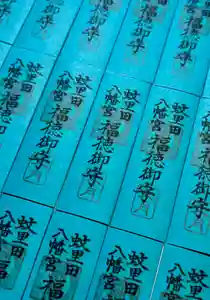 御守
御守
御守
福徳御守
蚊里田
八幡宮
福徳御守
蚊里田
八幡宮
福徳御守
蚊里田
八幡宮
福徳御守
福徳御守
蚊里田
八幡宮
蚊里田
八幡宮
福
蚊里田
八幡宮
八幡宮